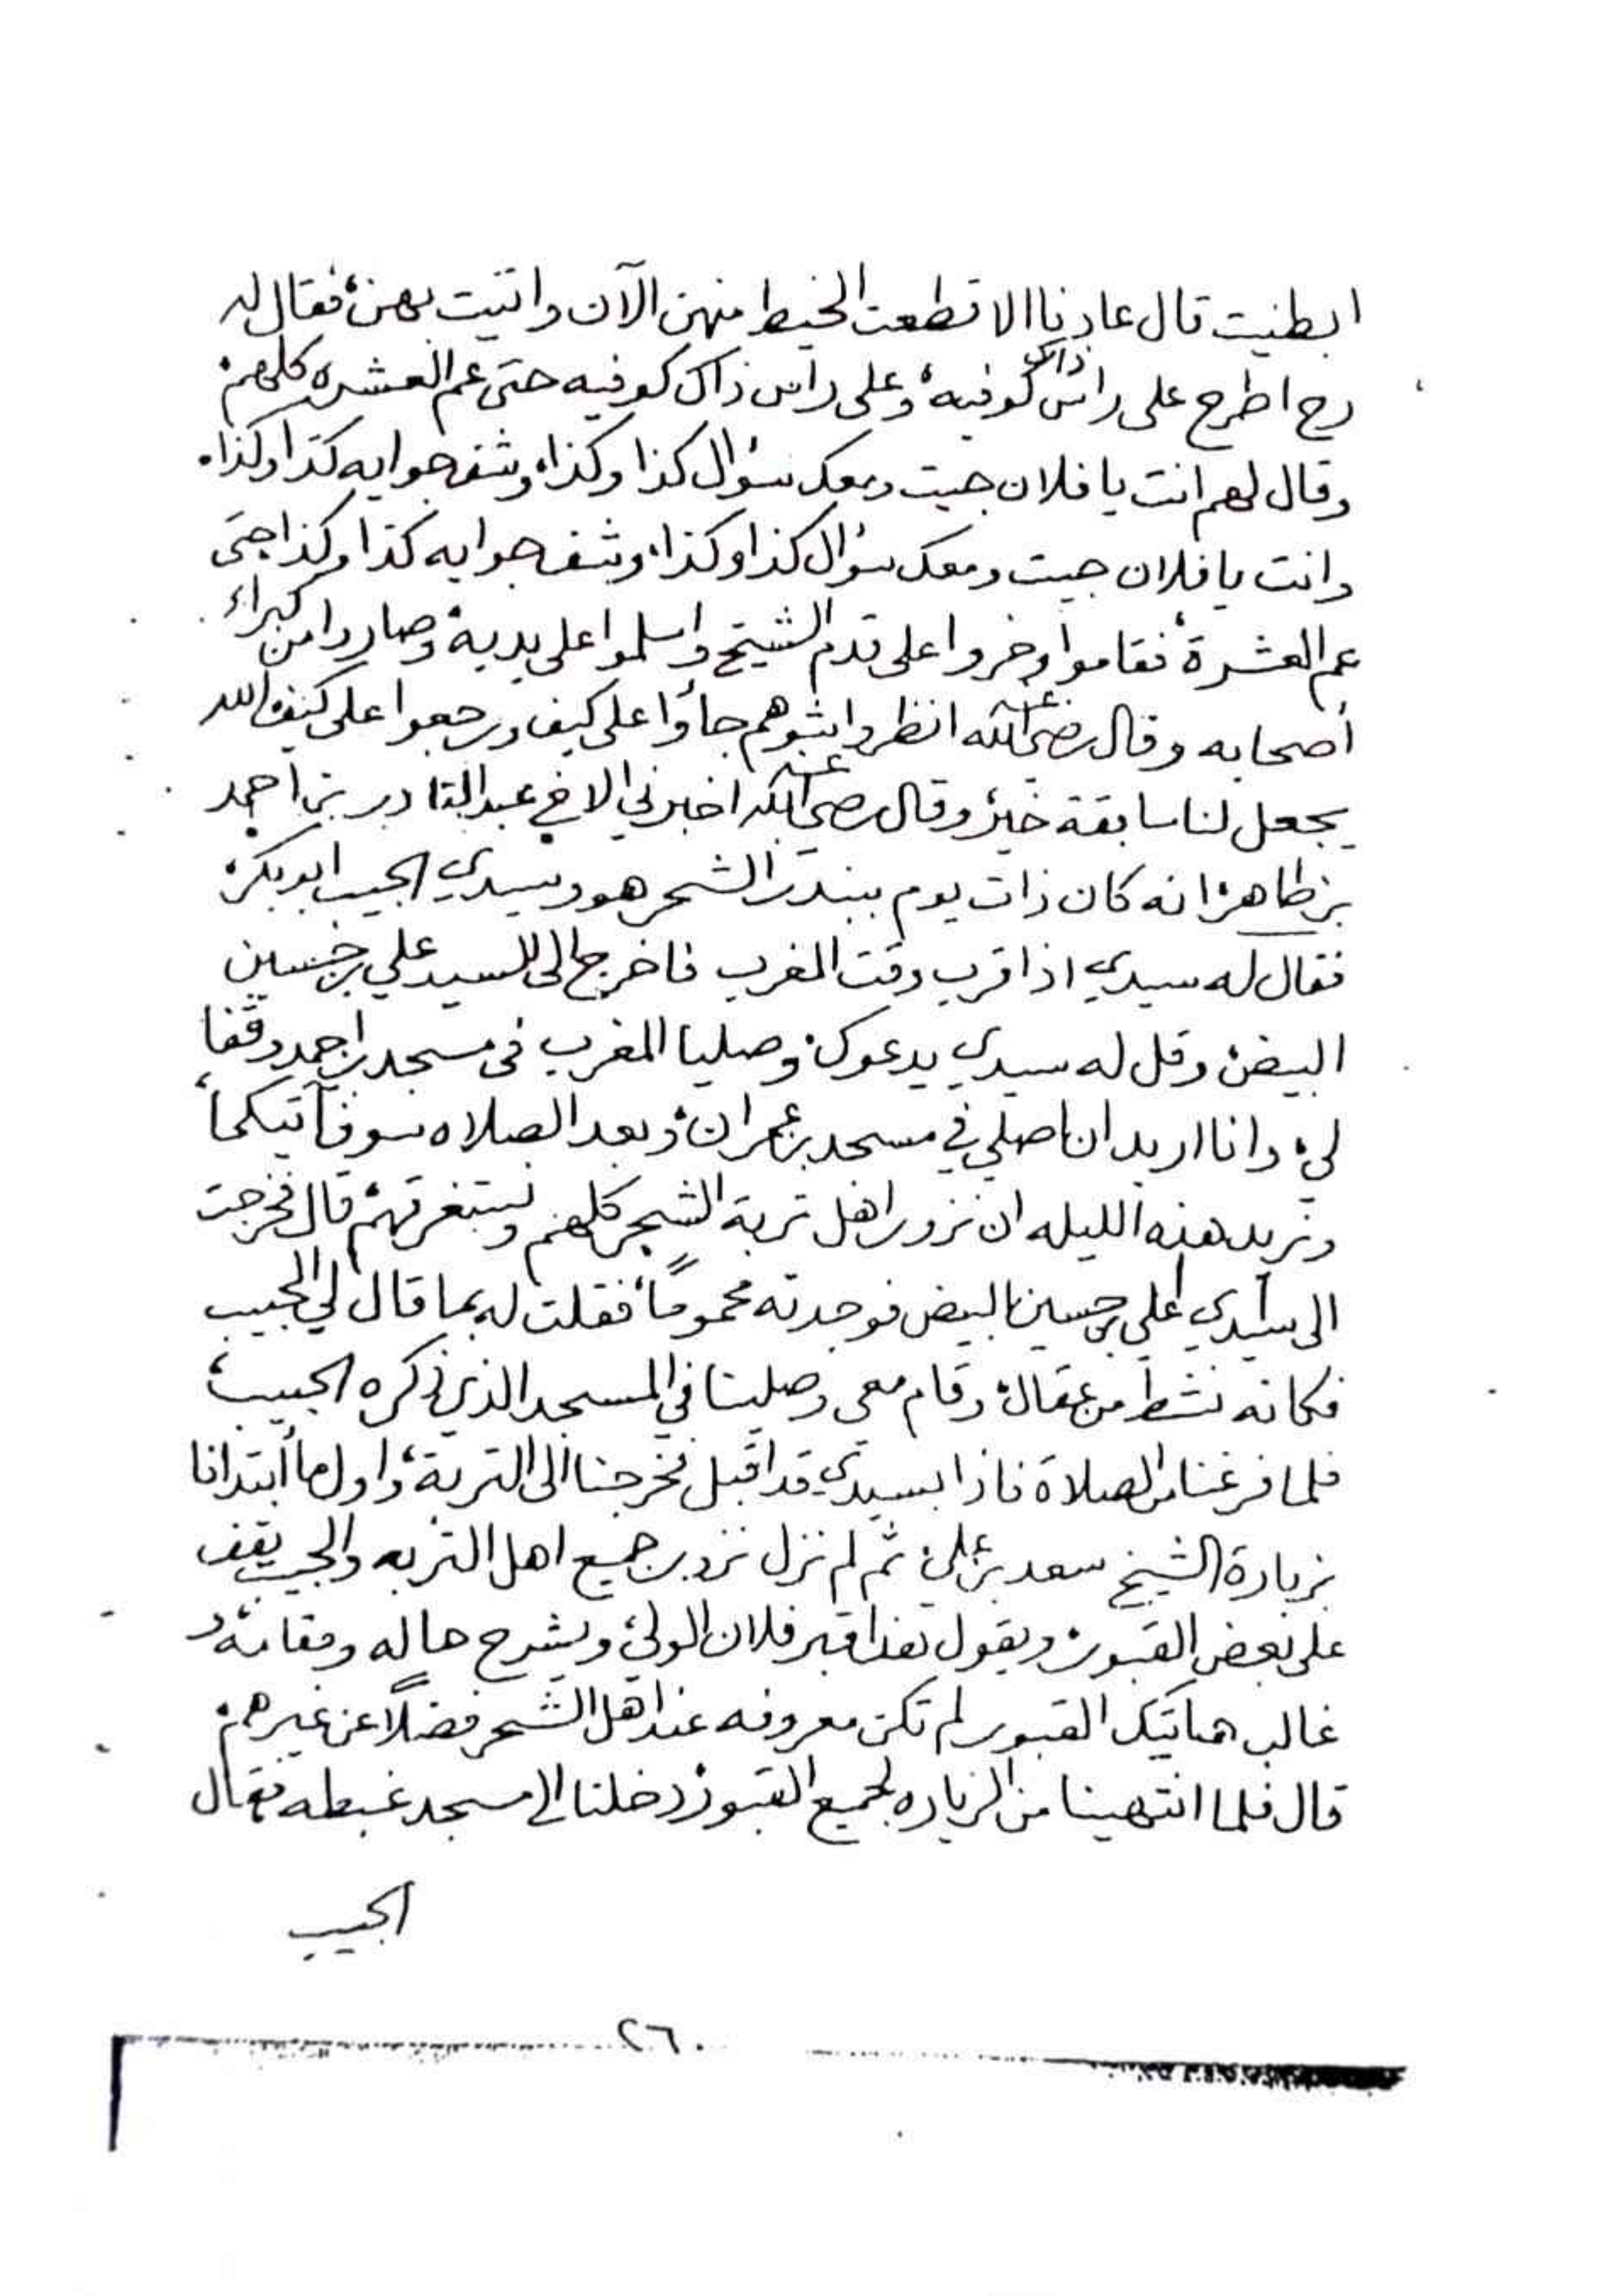 ابطيت قال عادنا الا قطعت الخيط منهن الآن واتيت بهن، فقال له
رح اطرح على راس ذاك كوفيه، وعلى راس ذاك كوفيه حتى عم العشره كلهم،
وقال لهم انت يا فلان جيت ومعك سؤال كذا وكذا، وشف جوابه كذا وكذا.
وانت يا فلان جيت ومعك سؤال كذا وكذا، وشف جوابه كذا وكذا حتى
عم العشرة، فقاموا وخروا على قدم الشيخ واسلموا على يديه، وصاروا من كبراء
أصحابه وقال رضي الله عنه انظروا جاؤا على كيف ورجعوا على كيف الله
يجعل لنا سابقة خير، وقال رضي الله عنه اخبرني الاخ عبد القادر بن احمد
بن طاهر، انه كان ذات يوم ببندر الشحر هو وسيدي الحبيب ابوبكر،
فقال له سيدي اذا قرب وقت المغرب فاخرج الى السيد علي بن حسين
البيض، وقل له سيدي يدعوك، وصليا المغرب فى مسجد باحمد وقفا
لي، وانا اريد ان اصلي في مسجد بن عمران، وبعد الصلاه سوف آتيكما،
ونريد هذه الليله ان نزور اهل تربة الشحر كلهم ونستغرقهم، قال فخرجت
الى سيدي علي بن حسين البيض فوجدته محموماً، فقلت له بما قال لي الحبيب
فكانه نشط من عقال، وقام معي وصلينا في المسجد الذي ذكره الحبيب،
فلما فرغنا من الصلاة فاذا بسيدي قد اقبل فخرجنا الى التربة، واول ما أبتدانا
بزيارة الشيخ سعد بن علي، ثم لم نزل نزور جميع اهل التربه والحبيب يقف
على بعض القبور، ويقول هذا قبر فلان الولي، ويشرح حاله ومقامه، و
غالب هاتيك القبور لم تكن معروفه عند اهل الشحر فضلاً عن غيرهم،
قال فلما انتهينا من الزياره لجميع القبور، دخلنا الى مسجد غبطه فقال
الحبيب
٢٦٠